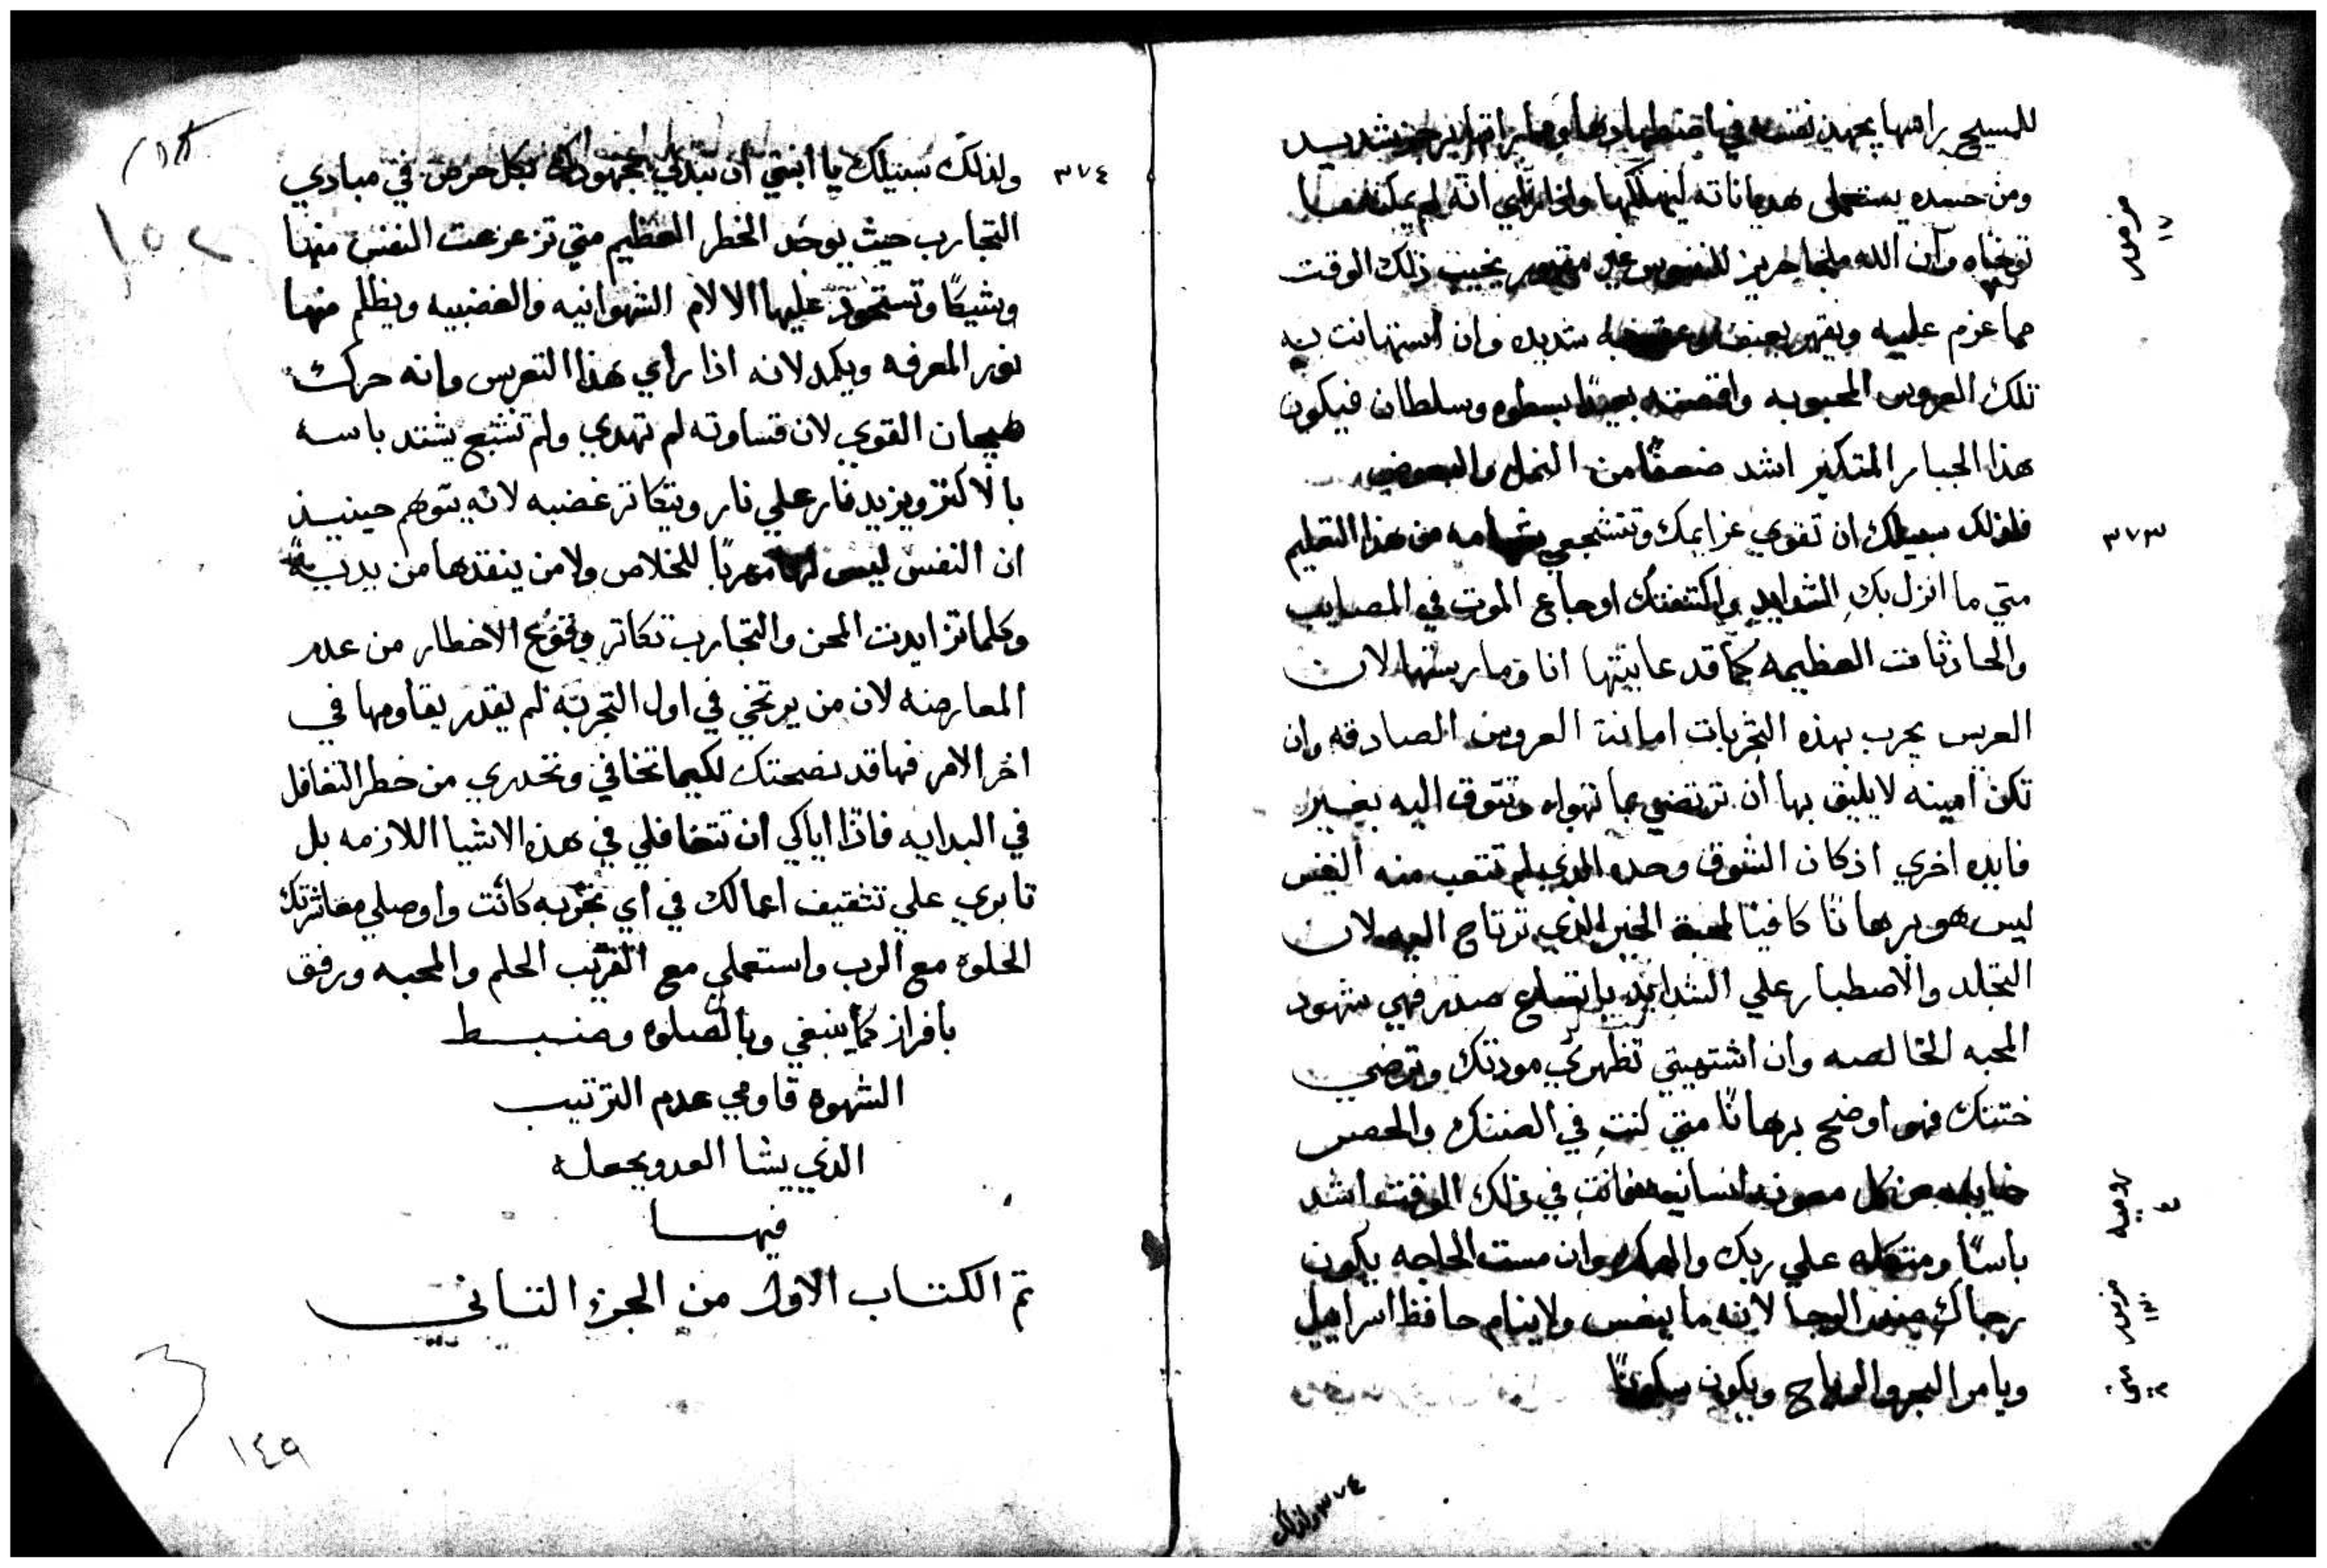 للمسيح يراسها يجهد نفسه في اضطهادها شديد
ومن حسده يستعمل هدياناته ليهلكها واذا راي انه لم يمكنه
وان الله ملجا حريز للنفوس غير مقهور يخيب ذلك الوقت
مما عزم عليه ويقهر بعنف شديد وان استهانت به
تلك العروس المحبوبه واقصته بعيدًا بسطوه وسلطان فيكون
هذا الجبار المتكبر اشد ضعفًا من النمل والبعوض
٣٧٣
فلذلك سبيلك ان تقوي عزايمك وتتشجعي بشهامه من هذا التعليم
متي ما انزل بكِ الشدايد واكتنفتك اوجاع الموت في المصايب
والحادثات العظيمه كما قد عاينتها انا ومارستها لان
العريس يجرب بهذه التجربات امانة العروس الصادقه وان
تكن امينه لا يليق بها ان ترتضي بما تهواه وتتوق اليه بغير
فايده اخري اذ كان الشوق وحده الذي لم تتعب منه النفس
ليس هو برهانًا كافيًا لمحبة الخير الذي ترتاح اليه لان
التجلد والاصطبار علي الشدايد باتساع صدر فهي شهود
المحبه الخالصه وان اشتهيتي تظهري مودتك وترضي
ختنك فهو اوضح برهانًا متي كنتِ في الضنك والحصر
خايبه من كل معونه انسانيه فانتِ في ذلك الوقت اشد
باسًا ومتكله علي ربك والهك وان مست الحاجه يكون
رجاكِ ضد الرجا لانه ما ينعس ولا ينام حافظ اسراييل
ويامر البحر والرياح ويكون سكونًا
٣٧٤ ولذلك
٣٧٤
ولذلك سبيلك يا ابنتي ان تبدلي مجهودك بكل حرص في مبادي
التجارب حيث يوجد الخطر العظيم متي تزعزعت النفس منها
وشيكًا وتستحوذ عليها الالام الشهوانيه والغضبيه ويظلم منها
نور المعرفه ويكمد لانه اذا راي هذا التعريس وانه حرك
هيجان القوي لان قساوته لم تهدي ولم تشبع يشتد باسه
بالاكثر ويزيد نار علي نار ويتكاثر غضبه لانه يتوهم حينيذ
ان النفس ليس لها مهربًا للخلاص ولا من ينقذها من يديه
وكلما تزايدت المحن والتجارب تكاثر الاخطار من عدم
المعارضه لان من يرتخي في اول التجربه لم يقدر يقاومها في
اخر الامر فها قد نصحتك لكيما تخافي وتحدري من خطر التغافل
في البدايه فاذًا اياكي ان تتغافلي في هذه الاشيا اللازمه بل
تابري علي تثقيف اعمالك في اي تجربه كانت واوصلي معاشرتك
الحلوه مع الرب واستعملي مع القريب الحلم والمحبه ورفق
بافراز كما ينبغي وبالصلوه وضبط
الشهوه قاومي عدم الترتيب
الذي يشا العدو يجعله
فيها
تم الكتاب الاول من الجزء التاني
١٤٩